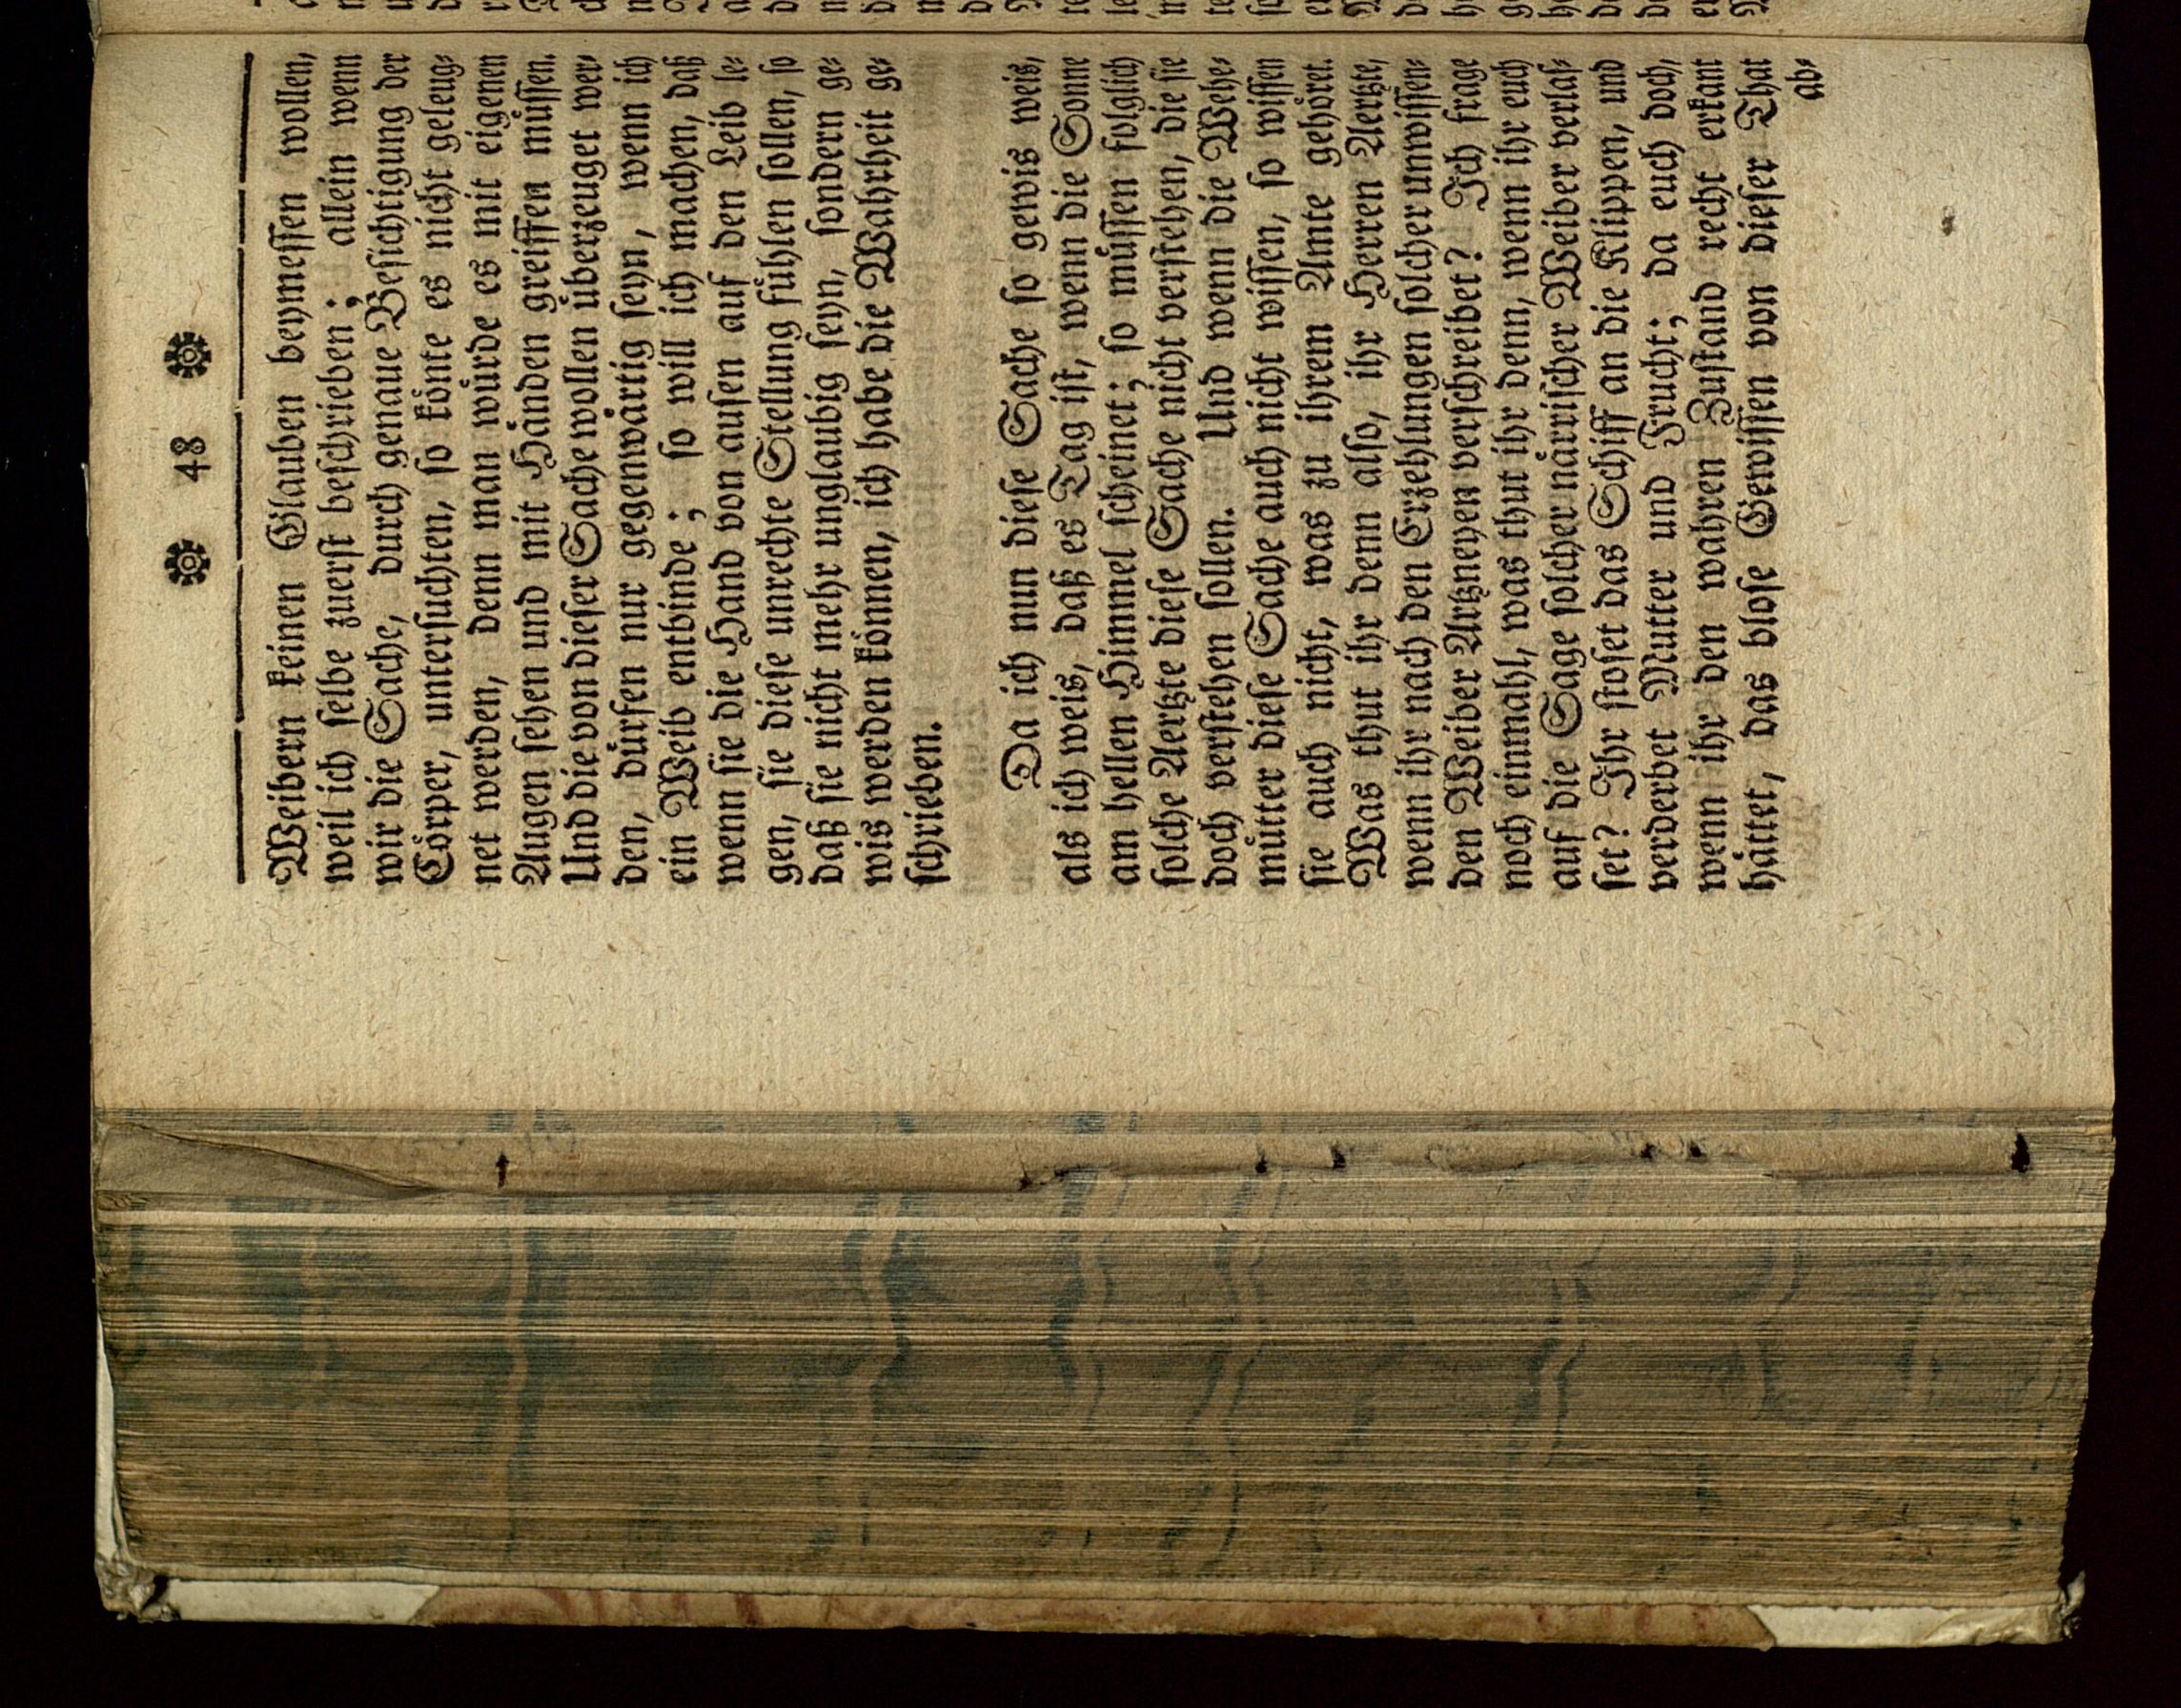 ❁ 48 ❁
Weibern keinen Glauben beymessen wollen,
weil ich selbe zuerst beschrieben; allein wenn
wir die Sache, durch genaue Besichtigung der
Cörper, untersuchten, so könte es nicht geleug-
net werden, denn man würde es mit eigenen
Augen sehen und mit Händen greiffen müssen.
Und die von dieser Sache wollen überzeuget wer-
den, dürfen nur gegenwärtig seyn, wenn ich
ein Weib entbinde; so will ich machen, daß
wenn sie die Hand von ausen auf den Leib le-
gen, sie diese unrechte Stellung fühlen sollen, so
daß sie nicht mehr unglaubig seyn, sondern ge-
wis werden können, ich habe die Wahrheit ge-
schrieben.
Da ich nun diese Sache so gewis weis,
als ich weis, daß es Tag ist, wenn die Sonne
am hellen Himmel scheinet; so müssen folglich
solche Aertzte diese Sache nicht verstehen, die sie
doch verstehen sollen. Und wenn die Wehe-
mütter diese Sache auch nicht wissen, so wissen
sie auch nicht, was zu ihrem Amte gehöret.
Was thut ihr denn also, ihr Herren Aertzte,
wenn ihr nach den Erzehlungen solcher unwissen-
den Weiber Artzneyen verschreibet? Ich frage
noch einmahl, was thut ihr denn, wenn ihr euch
auf die Sage solcher närrischer Weiber verlas-
set? Ihr stoset das Schiff an die Klippen, und
verderbet Mutter und Frucht; da euch doch,
wenn ihr den wahren Zustand recht erkant
hättet, das blose Gewissen von dieser That
ab-